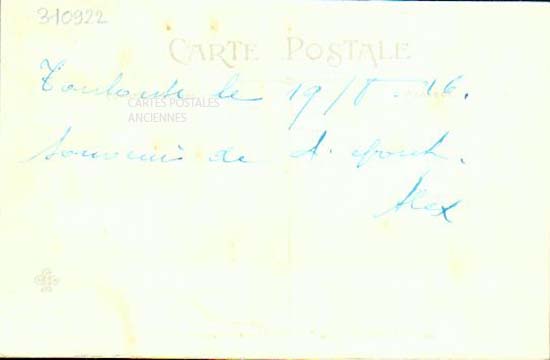 310922
CARTE POSTALE
Toulouse le 19/8 - 16.
CARTES POSTALES
ANCIENNES
Souvenir de
Alex